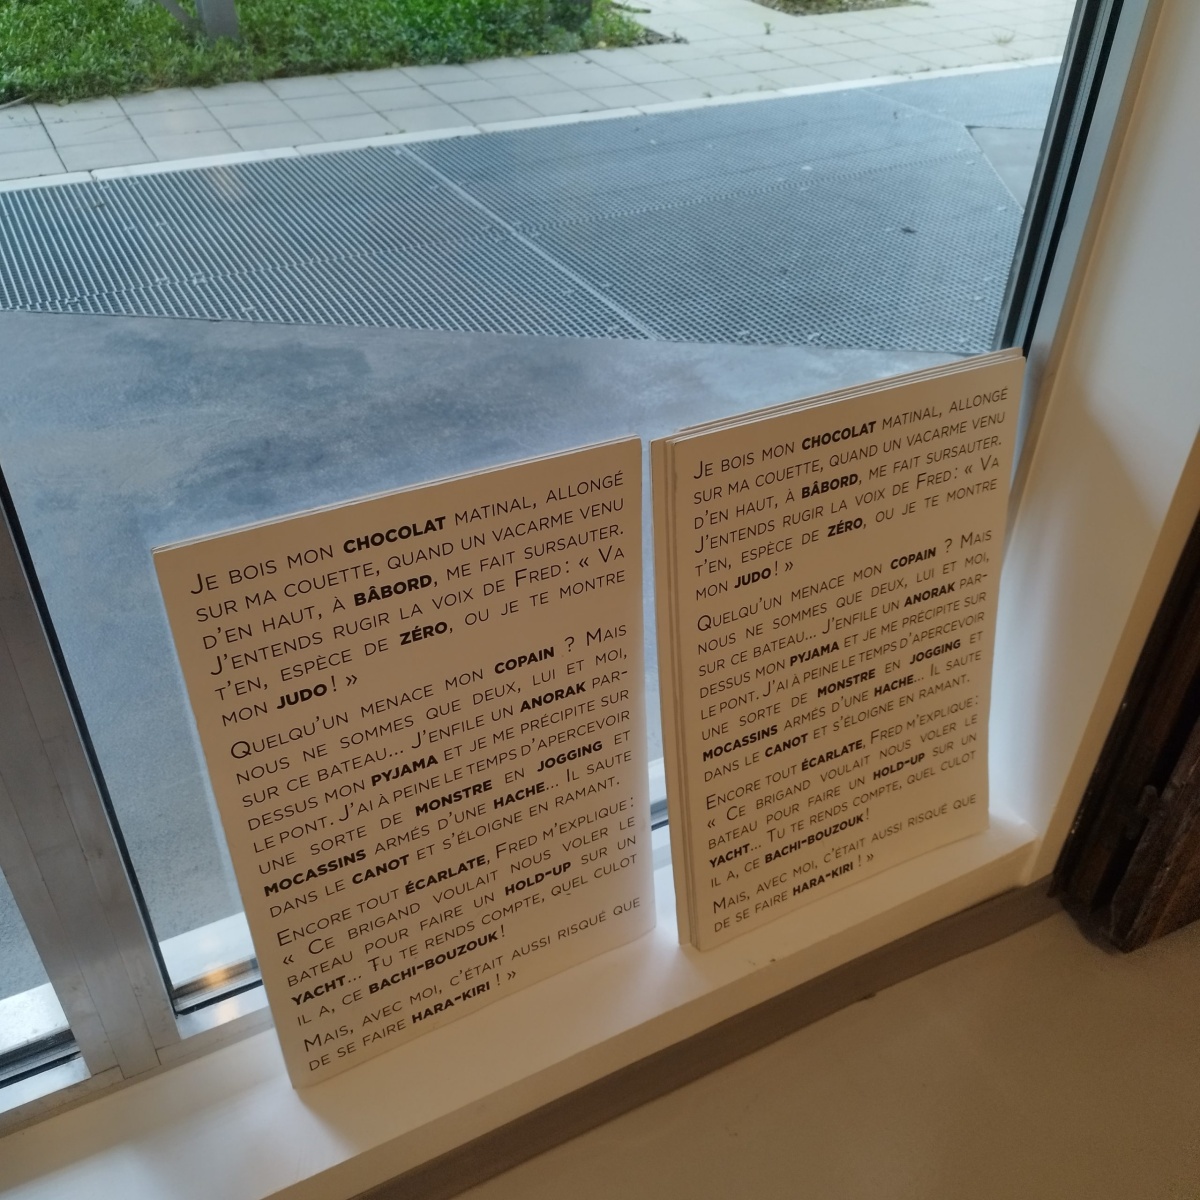 Je bois mon CHOCOLAT matinal, allongé
sur ma couette, quand un vacarme venu
d'en haut, à BÂBORD, me fait sursauter.
J'entends rugir la voix de Fred : « Va
t'en, espèce de ZÉRO, ou je te montre
mon JUDO ! »
Quelqu'un menace mon COPAIN ? Mais
nous ne sommes que deux, lui et moi,
sur ce bateau... J'enfile un ANORAK par-
dessus mon PYJAMA et je me précipite sur
le pont. J'ai à peine le temps d'apercevoir
une sorte de MONSTRE en JOGGING et
MOCASSINS armés d'une HACHE... Il saute
dans le CANOT et s'éloigne en ramant.
Encore tout ÉCARLATE, Fred m'explique :
« Ce brigand voulait nous voler le
bateau pour faire un HOLD-UP sur un
YACHT... Tu te rends compte, quel culot
il a, ce BACHI-BOUZOUK !
Mais, avec moi, c'était aussi risqué que
de se faire HARA-KIRI ! »
Je bois mon CHOCOLAT matinal, allongé
sur ma couette, quand un vacarme venu
d'en haut, à BÂBORD, me fait sursauter.
J'entends rugir la voix de Fred : « Va
t'en, espèce de ZÉRO, ou je te montre
mon JUDO ! »
Quelqu'un menace mon COPAIN ? Mais
nous ne sommes que deux, lui et moi,
sur ce bateau... J'enfile un ANORAK par-
dessus mon PYJAMA et je me précipite sur
le pont. J'ai à peine le temps d'apercevoir
une sorte de MONSTRE en JOGGING et
MOCASSINS armés d'une HACHE... Il saute
dans le CANOT et s'éloigne en ramant.
Encore tout ÉCARLATE, Fred m'explique :
« Ce brigand voulait nous voler le
bateau pour faire un HOLD-UP sur un
YACHT... Tu te rends compte, quel culot
il a, ce BACHI-BOUZOUK !
Mais, avec moi, c'était aussi risqué que
de se faire HARA-KIRI ! »